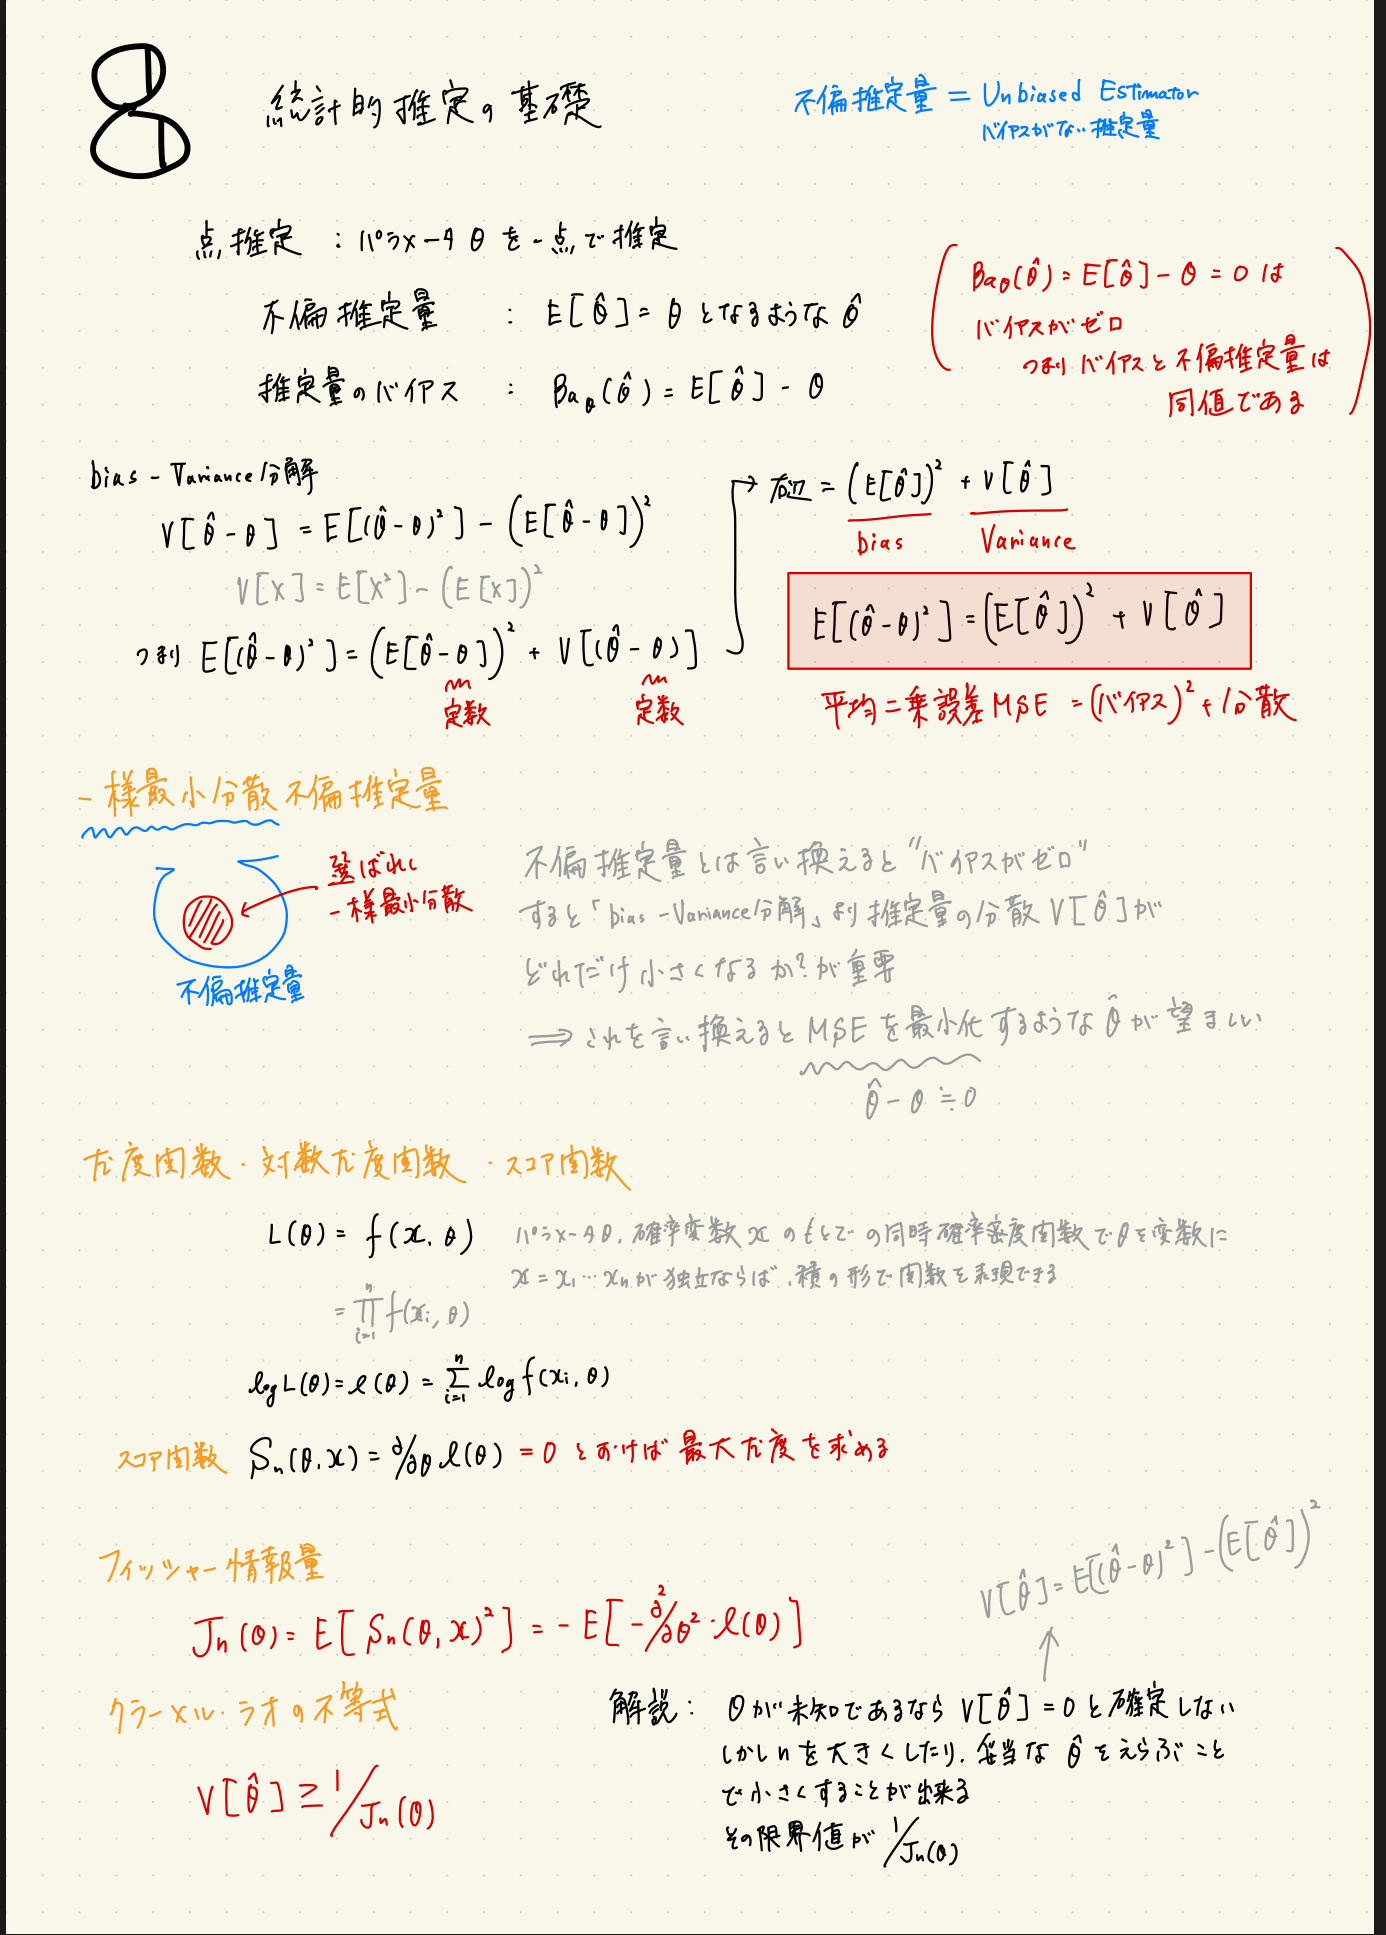 8
統計的推定の基礎
不偏推定量 = Unbiased Estimator
バイアスがない推定量
点推定 : パラメータ θ を一点で推定
不偏推定量 : E[θ̂] = θ となるような θ̂
推定量のバイアス : Ba_θ(θ̂) = E[θ̂] - θ
Ba_θ(θ̂) = E[θ̂] - θ = 0 は
バイアスがゼロ
つまり バイアスと不偏推定量は
同値である
bias - Variance分解
V[θ̂ - θ] = E[(θ̂ - θ)²] - (E[θ̂ - θ])²
V[X] = E[X²] - (E[X])²
つまり E[(θ̂ - θ)²] = (E[θ̂ - θ])² + V[(θ̂ - θ)]
定数 定数
→ 右辺 = (E[θ̂])² + V[θ̂]
bias Variance
E[(θ̂ - θ)²] = (E[θ̂])² + V[θ̂]
平均二乗誤差 MSE = (バイアス)² + 分散
一様最小分散不偏推定量
選ばれし
一様最小分散
不偏推定量
不偏推定量とは言い換えると"バイアスがゼロ"
すると「bias - Variance分解」より推定量の分散 V[θ̂]が
どれだけ小さくなるか?が重要
⇒ これを言い換えると MSE を最小化するような θ̂ が望ましい
θ̂ - θ ≒ 0
尤度関数・対数尤度関数・スコア関数
L(θ) = f(x, θ) パラメータθ, 確率変数xのもとでの同時確率密度関数でθを変数に
x = x₁…xₙが独立ならば, 積の形で関数を表現できる
= ∏ᵢ₌₁ⁿ f(xᵢ, θ)
log L(θ) = ℓ(θ) = Σᵢ₌₁ⁿ log f(xᵢ, θ)
スコア関数 Sₙ(θ, x) = ∂/∂θ ℓ(θ) = 0 とおけば最大尤度を求める
フィッシャー情報量
Jₙ(θ) = E[Sₙ(θ, x)²] = - E[-∂²/∂θ²・ℓ(θ)]
V[θ̂] = E[(θ̂ - θ)²] - (E[θ̂])²
クラーメル・ラオの不等式
V[θ̂] ≥ 1/Jₙ(θ)
解説 : θが未知であるなら V[θ̂] = 0 と確定しない
しかしnを大きくしたり, 妥当な θ̂ をえらぶこと
で小さくすることが出来る
その限界値が 1/Jₙ(θ)